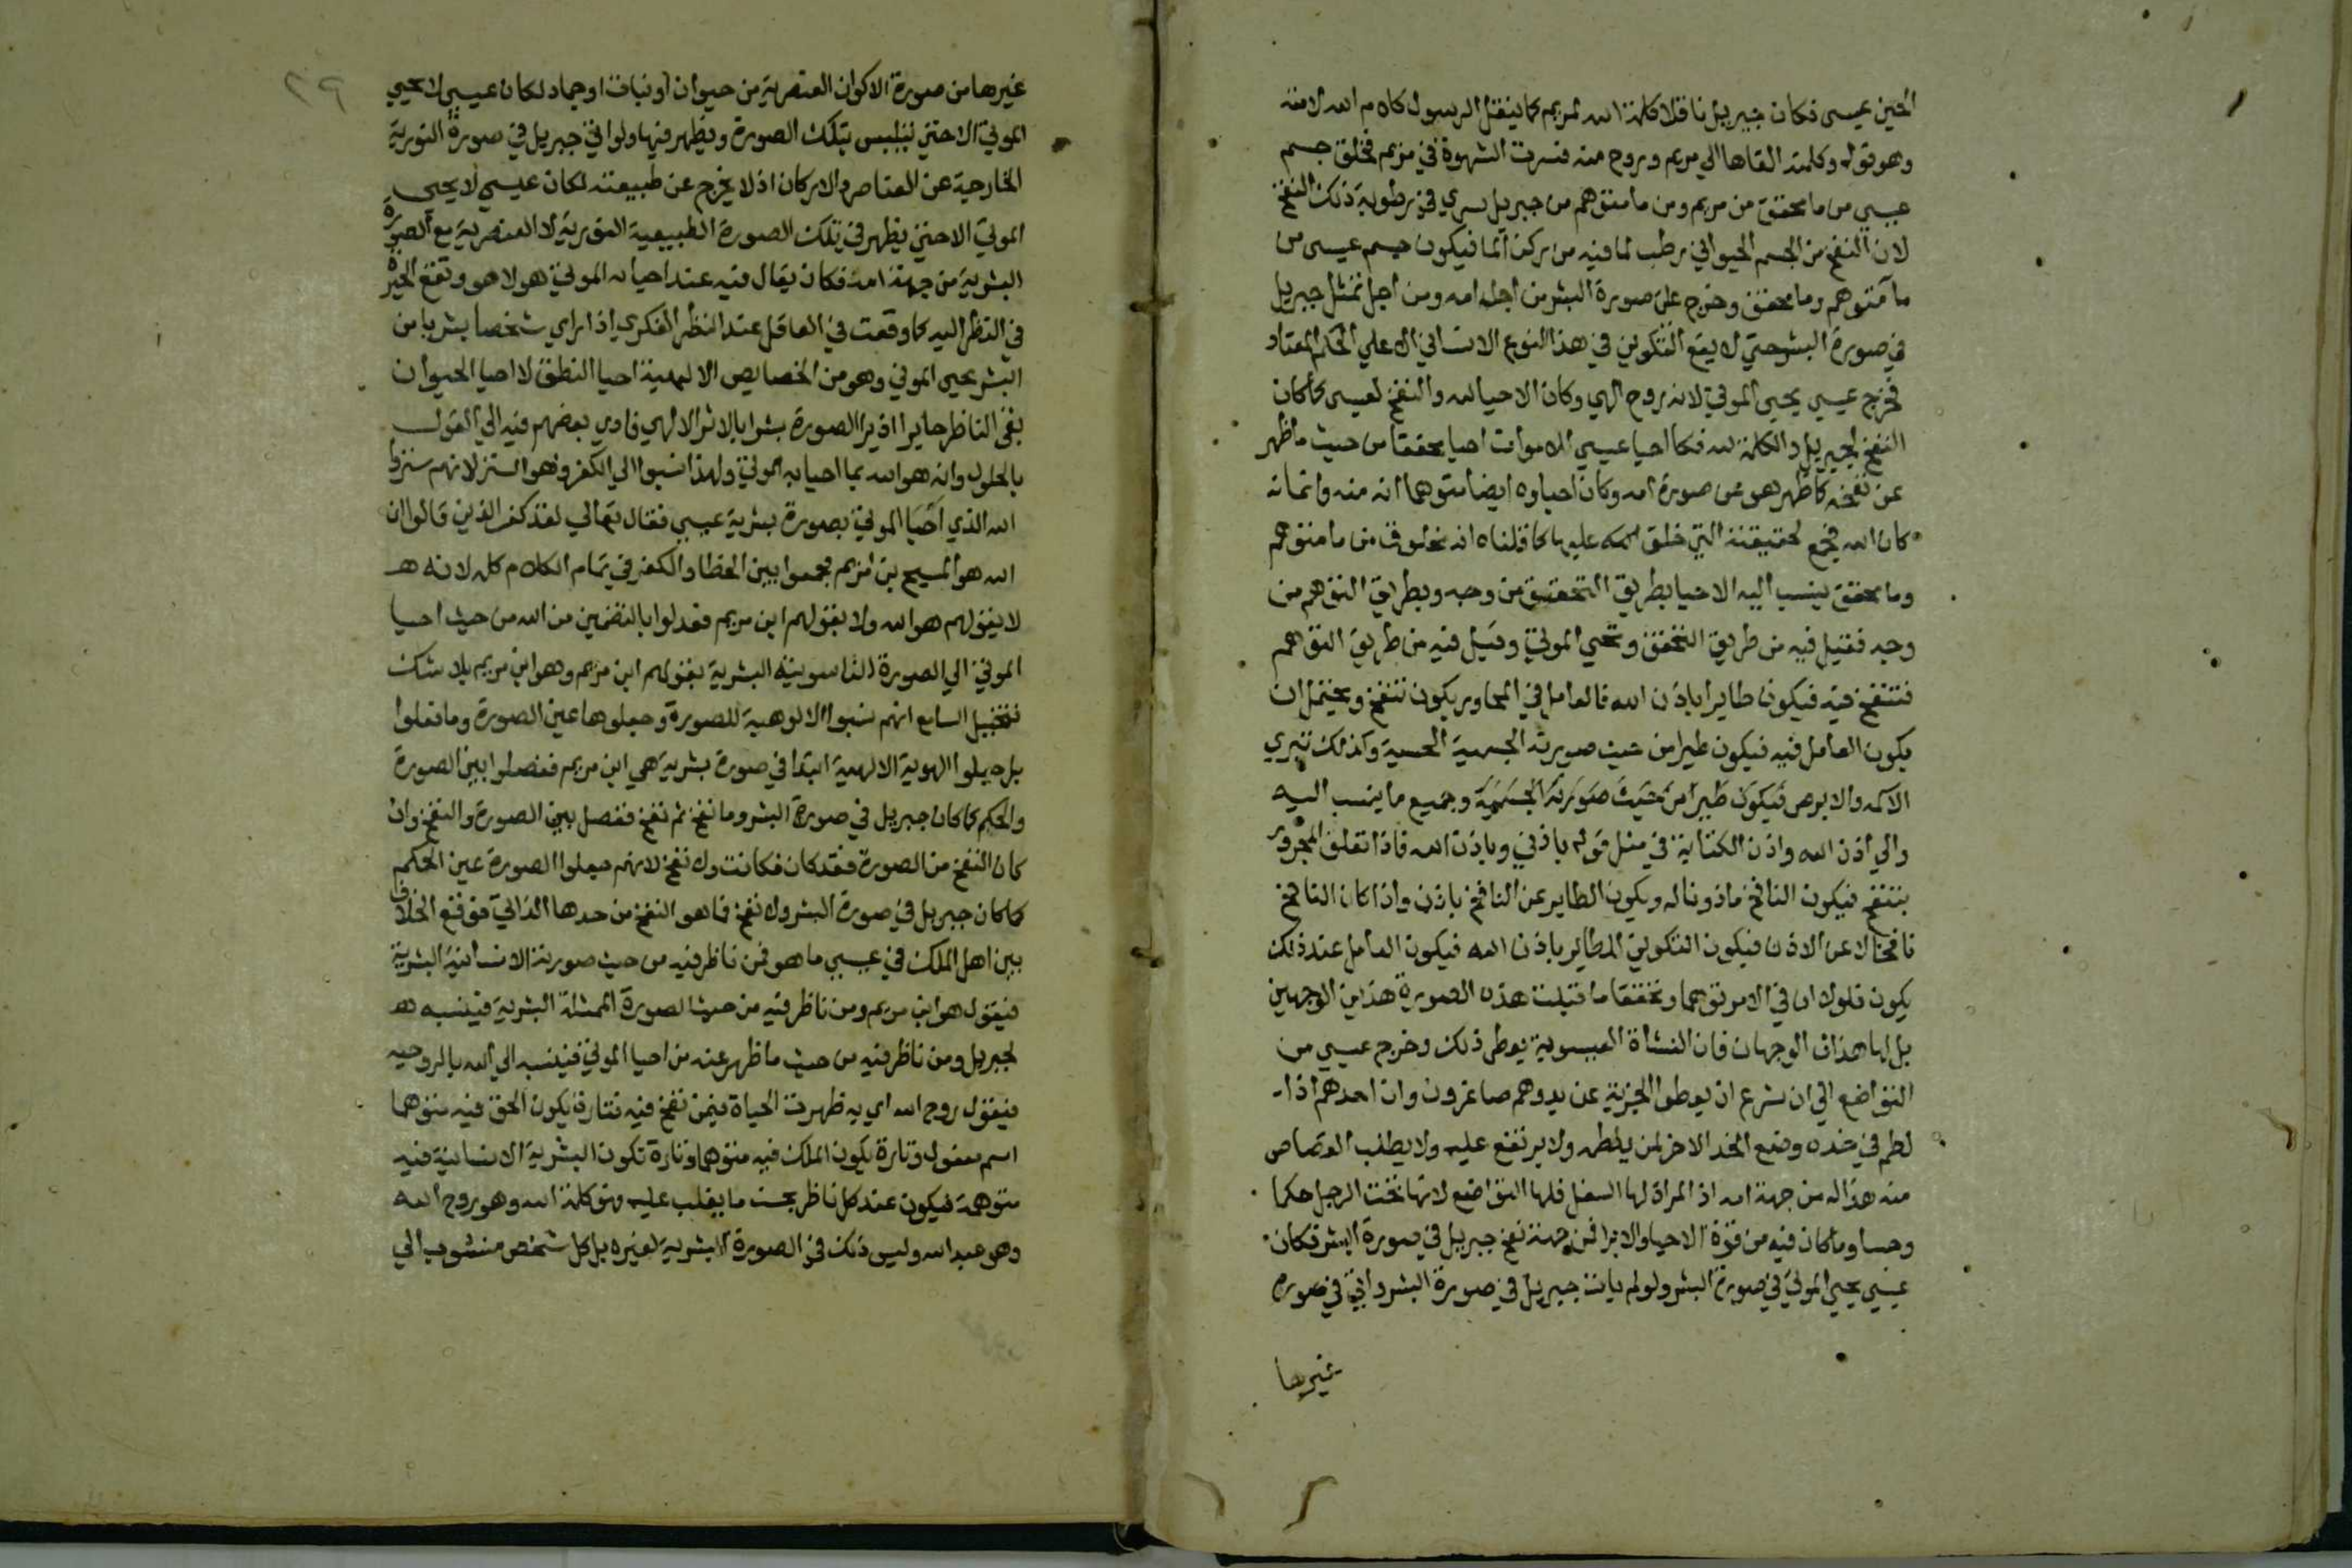 الحين عيسى فكان جبريل ناقلا كلمة الله لمريم كما ينقل الرسول كلام الله لامته
وهو قوله وكلمته القاها الي مريم وروح منه فسرت الشهوة في مريم فخلق جسم
عيسي من ما محقق من مريم ومن ما متوهم من جبريل سري في رطوبة ذلك النفخ
لان النفخ من الجسم الحيواني رطب لما فيه من ركن الما فيكون جسم عيسى من
ما متوهم وما محقق وخرج على صورة البشر من اجل امه ومن اجل تمثل جبريل
في صورة البشر حتي لا يقع التكوين في هذا النوع الانساني الا علي الحكم المعتاد
فخرج عيسي يحيى الموتي لانه روح الهي وكان الاحيا لله والنفخ لعيسى كما كان
النفخ لجبريل والكلمة لله فكما احيا عيسي الاموات احيا محققا من حيث ما ظهر
عن نفخه كما ظهر هو من صورة امه وكان احياوه ايضا متوهما انه منه وانما نه
كان الله فجمع لحقيقته التي خلق عليها كما قلناه انه مخلوق من ما متوهم
وما محقق ينسب اليه الاحيا بطريق التحقيق من وجه وبطريق التوهم من
وجه فقيل فيه من طريق التحقق وتحيي الموتي وقيل فيه من طريق التوهم
فتنفخ فيه فيكون طايرا باذن الله فالعامل في المجاور يكون تنفخ ويحتمل ان
يكون العامل فيه فيكون طيرا من حيث صورته الجسمية الحسية وكذلك تبري
الاكمه والابرص فيكون طيرا من حيث صورته الجسمية وجميع ما ينسب اليه
والي اذن الله واذن الكتابة في مثل قوله باذني وباذن الله فاذا تعلق المجرور
بتنفخ فيكون النافخ ماذونا له ويكون الطاير عن النافخ باذن واذا كان النافخ
نافخا لا عن الاذن فيكون التكوين للطاير باذن الله فيكون العامل عند ذلك
يكون فلولا ان في الامر توهما وتحققا ما قبلت هذه الصورة هذين الوجهين
بل لها هذان الوجهان فان النشاة العيسوية يعطي ذلك وخرج عيسي من
التواضع الي ان شرع ان يعطوا الجزية عن يد وهم صاغرون وان احدهم اذا
لطم في خده وضع الخد الاخر لمن يلطمه ولا يرتفع عليه ولا يطلب القصاص
منه هذا له من جهة امه اذ المراة لها السفل فلها التواضع لانها تحت الرجل حكما
وحسا وما كان فيه من قوة الاحيا والابرا فمن جهة نفخ جبريل في صورة البشر فكان
عيسي يحيي الموتي في صورة البشر ولو لم يات جبريل في صورة البشر واتي في صورة
غيرها
٢٩
غيرها من صورة الاكوان العنصرية من حيوان او نبات او جماد لكان عيسي لا يحيي
الموتي الا حتي يتلبس بتلك الصورة ويظهر فيها ولو اتي جبريل في صورة النورية
الخارجية عن العناصر والاركان اذ لا يخرج عن طبيعته لكان عيسي لا يحيى
الموتي الا حتي يظهر في تلك الصورة الطبيعية النورية لا العنصرية مع الصورة
البشرية من جهة امه فكان يقال فيه عند احيائه الموتي هو لا هو وتقع الحيرة
في النظر اليه كما وقعت في العاقل عند النظر الفكري اذا راي شخصا بشريا من
البشر يحيى الموتي وهو من الخصايص الالهية احيا النطق لا احيا الحيوان
بقى الناظر حايرا اذ يرا الصورة بشرا بالاثر الالهي فادي بعضهم فيه الي القول
بالحلول وانه هو الله بما احيا به الموتي ولهذا نسبوا الي الكفر وهو الستر لانهم ستروا
الله الذي احيا الموتي بصورة بشرية عيسي فقال تعالي لقد كفر الذين قالوا ان
الله هو المسيح بن مريم فجمعوا بين الخطا والكفر في تمام الكلام كله لانه هـ
لا بقولهم هو الله ولا بقولهم ابن مريم فعدلوا بالتضمين من الله من حيث احيا
الموتي الي الصورة الناسوتية البشرية بقولهم ابن مريم وهو ابن مريم بلا شك
فتخيل السامع انهم نسبوا الالوهية للصورة وجعلوها عين الصورة وما فعلوا
بل جعلوا الهوية الالهية ابتدا في صورة بشرية هي ابن مريم ففصلوا بين الصورة
والحكم كما كان جبريل في صورة البشر وما نفخ ثم نفخ ففصل بين الصورة والنفخ وان
كان النفخ من الصورة فقد كان فكانت ولا نفخ لانهم جعلوا الصورة عين الحكم
كما كان جبريل في صورة البشر ولا نفخ فما هو النفخ من حدها الذاتي فوقع الخلاف
بين اهل الملك في عيسي ما هو فمن ناظر فيه من حيث صورته الانسانية البشرية
فيقول هو ابن مريم ومن ناظر فيه من حيث الصورة الممثلة البشرية فينسبه هـ
لجبريل ومن ناظر فيه من حيث ما ظهر عنه من احيا الموتي فينسبه الي الله بالروحيه
فيقول روح الله اي به ظهرت الحياة فيمن نفخ فيه فتارة يكون الحق فيه متوهما
اسم مفعول وتارة يكون الملك فيه متوهما وتارة تكون البشرية الانسانية فيه
متوهمة فيكون عند كل ناظر بحسب ما يغلب عليه فهو كلمة الله وهو روح الله
وهو عبد الله وليس ذلك في الصورة البشرية لغيره بل كل شخص منسوب الي